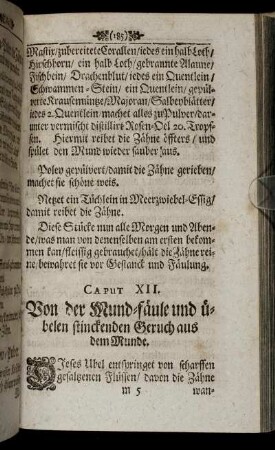 (185)
Mastix/zubereitete Corallen/iedes ein halb Loth/
Hirschhorn/ ein halb Loth/gebrannte Alaune/
Fischbein/ Drachenblut/iedes ein Quentlein/
Schwammen-Stein/ ein Quentlein/ gepül-
verte Krausemüntze/Majoran/Salbeyblätter/
iedes 2. Quentlein machet alles zu Pulver/dar-
unter vermischt distillirt Rosen-Oel 20. Tropf-
fen. Hiermit reibet die Zähne öffters/ und
spület den Mund wieder sauber aus.
Poley gepülvert/damit die Zähne gerieben/
machet sie schöne weis.
Netzet ein Tüchlein in Meerzwiebel-Essig/
damit reibet die Zähne.
Diese Stücke nun alle Morgen und Aben-
de/was man von denenselben am ersten bekom-
men kan/fleissig gebrauchet/hält die Zähne rei-
ne/bewahret sie vor Gestanck und Fäulung.
CAPUT XII.
Von der Mund-fäule und ü-
belen stinckenden Geruch aus
dem Munde.
DIeses Ubel entspringet von scharffen
gesaltzenen Flüssen/ davon die Zähne
m 5 wan-